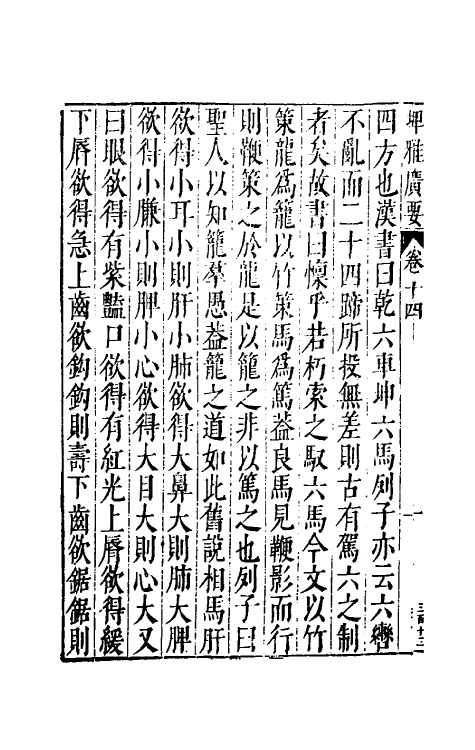 埤雅廣要 卷十四
四方也漢書曰乾六車坤六馬列子亦云六轡
不亂而二十四蹄所投無差則古有駕六之制
者矣故書曰懍乎若朽索之馭六馬今文以竹
策龍爲籠以竹策馬爲篤葢良馬見鞭影而行
則鞭策之於龍是以籠之非以篤之也列子曰
聖人以知籠羣愚葢籠之道如此舊說相馬肝
欲得小耳小則肝小肺欲得大鼻大則肺大脾
欲得小膁小則脾小心欲得大目大則心大又
曰眼欲得有紫豔口欲得有紅光上脣欲得緩
下脣欲得急上齒欲鈎鈎則壽下齒欲鋸鋸則